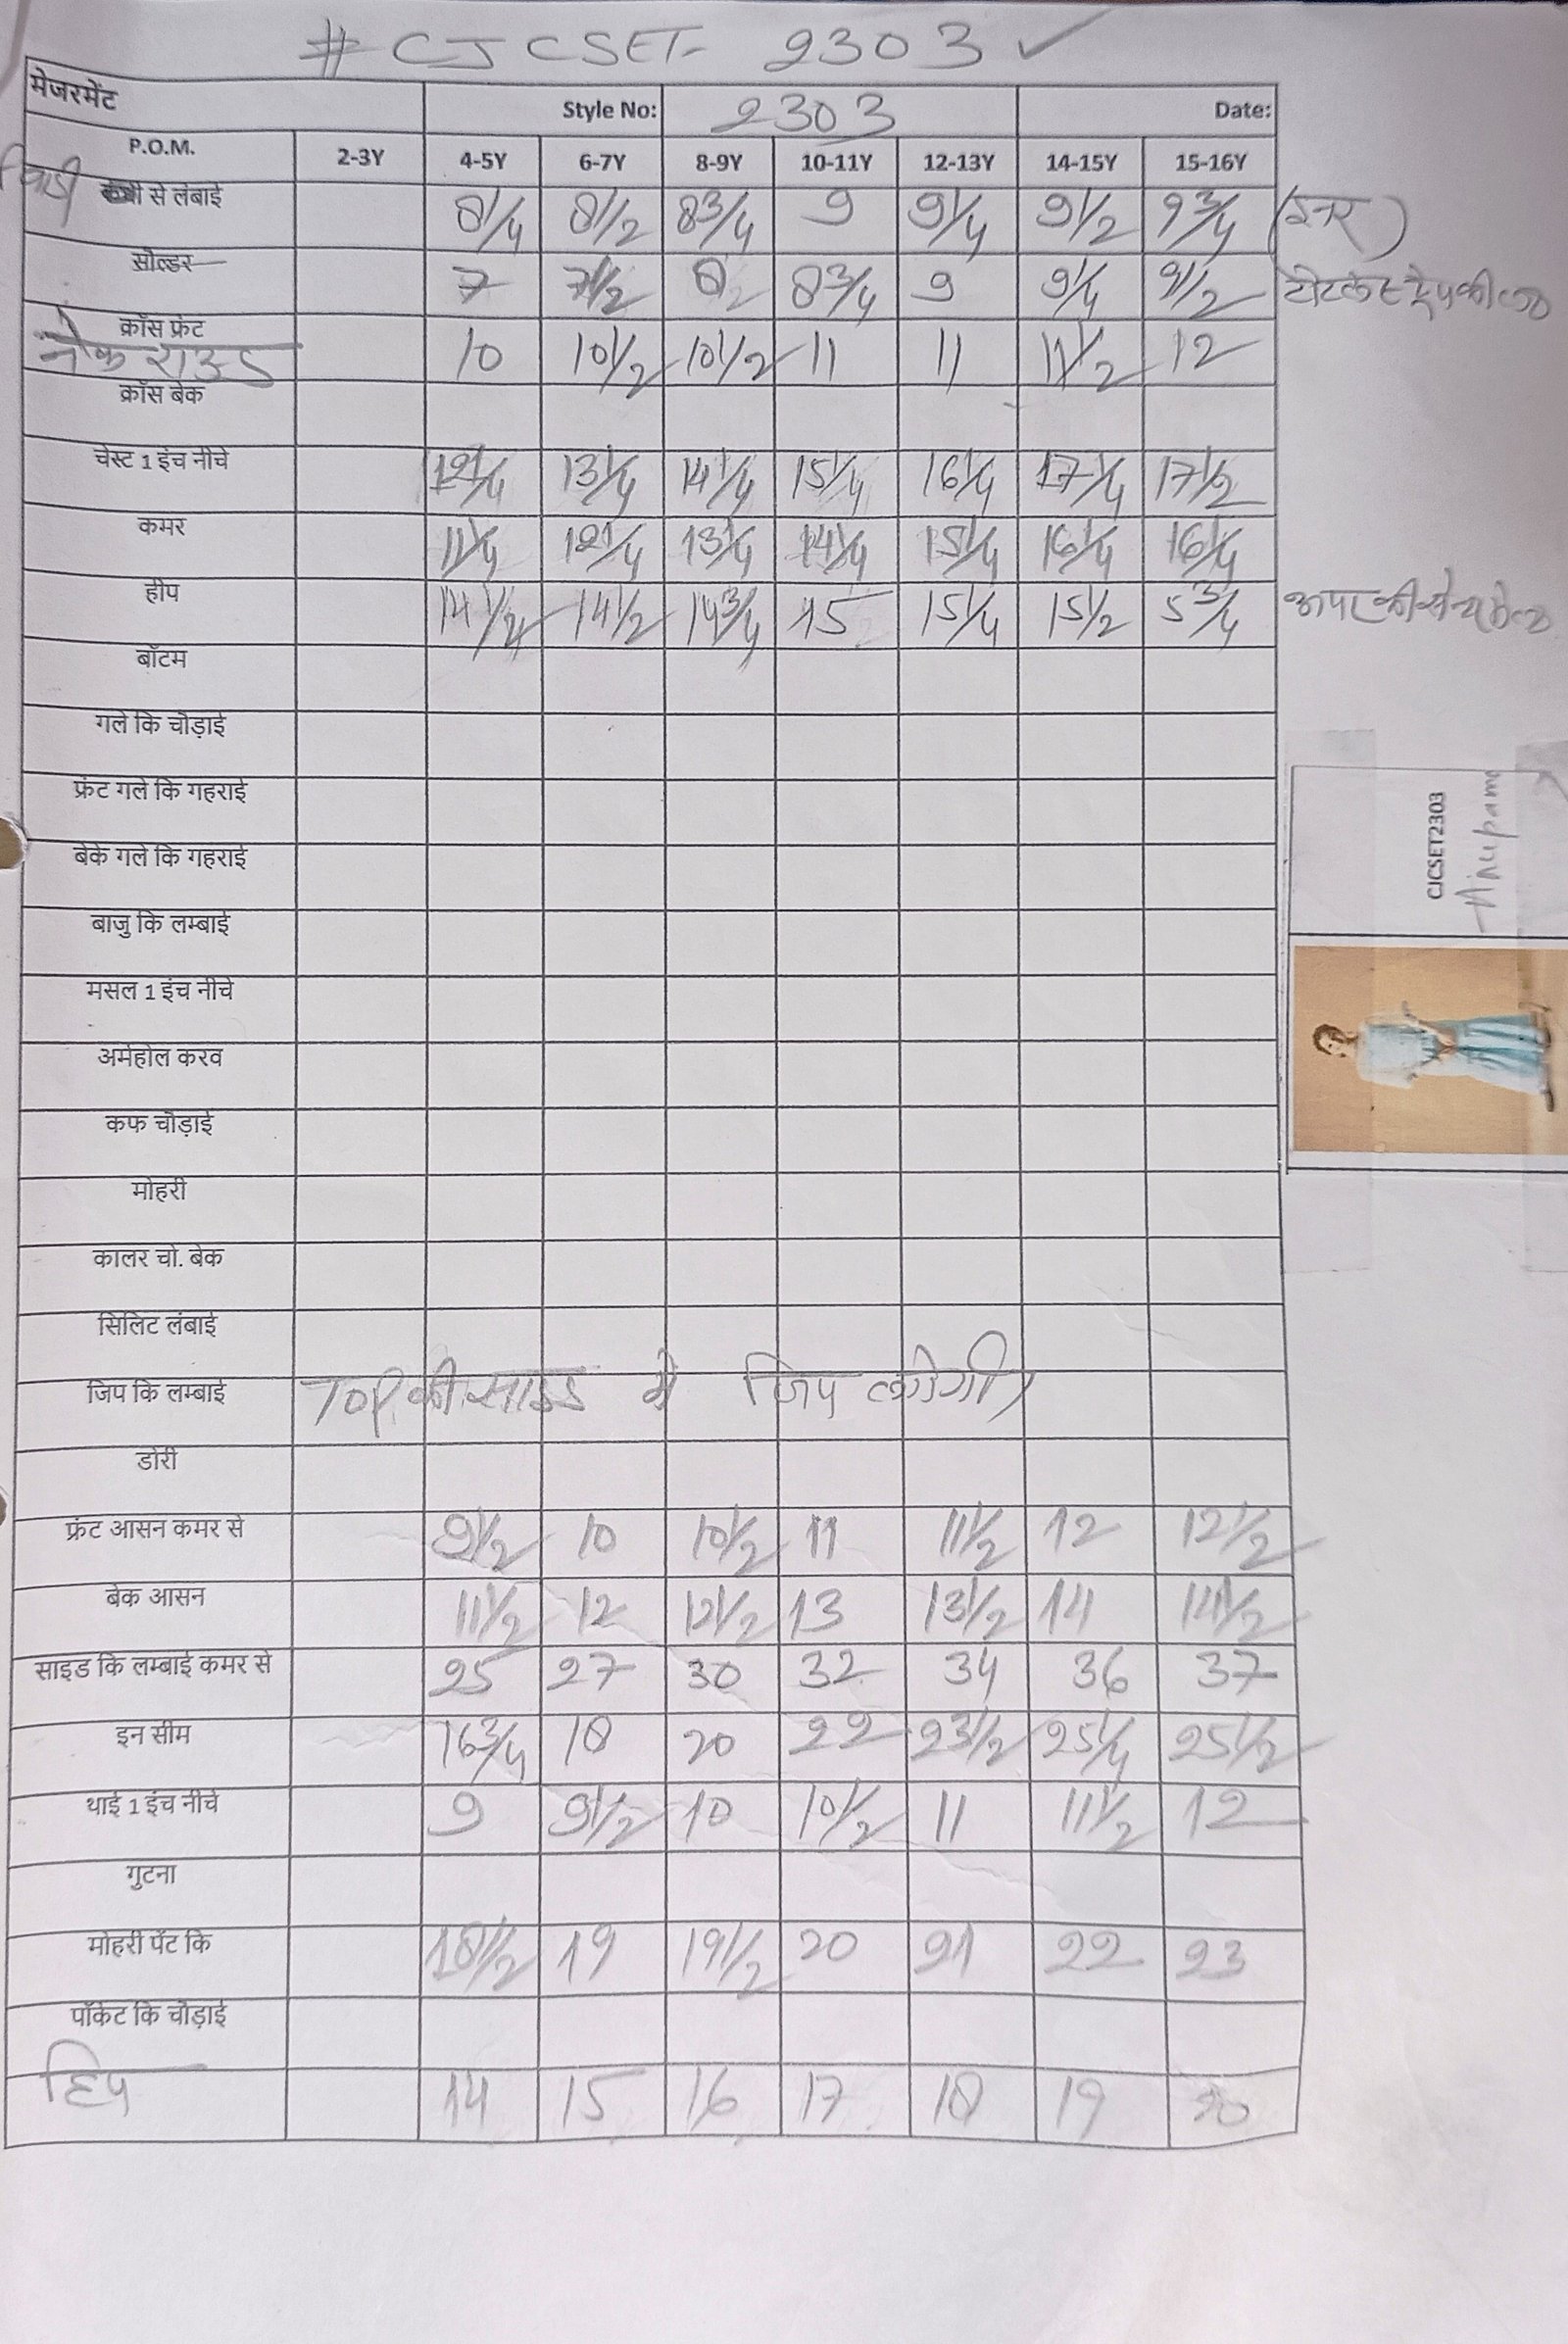 # CJCSET- 2303 ✓
मेजरमेंट Style No: 2303 Date:
P.O.M. 2-3Y 4-5Y 6-7Y 8-9Y 10-11Y 12-13Y 14-15Y 15-16Y
से लंबाई 8 1/4 8 1/2 8 3/4 9 9 1/4 9 1/2 9 3/4 (इनर)
सोल्डर 7 7 1/2 8 8 3/4 9 9 1/4 9 1/2
क्रॉस फ्रंट
नेक राऊंड 10 10 1/2 10 1/2 11 11 11 1/2 12
क्रॉस बेक
चेस्ट 1 इंच नीचे 12 1/4 13 1/4 14 1/4 15 1/4 16 1/4 17 1/4 17 1/2
कमर 11 1/4 12 1/4 13 1/4 14 1/4 15 1/4 16 1/4 16 1/4
हीप 14 1/4 14 1/2 14 3/4 15 15 1/4 15 1/2 5 3/4
बॉटम
गले कि चौड़ाई
फ्रंट गले कि गहराई
बेके गले कि गहराई
बाजु कि लम्बाई
मसल 1 इंच नीचे
अर्महोल करव
कफ चौड़ाई
मोहरी
कालर चो. बेक
सिलिट लंबाई
जिप कि लम्बाई Top की साइड में जिप लगेगी।
डोरी
फ्रंट आसन कमर से 9 1/2 10 10 1/2 11 11 1/2 12 12 1/2
बेक आसन 11 1/2 12 12 1/2 13 13 1/2 14 14 1/2
साइड कि लम्बाई कमर से 25 27 30 32 34 36 37
इन सीम 16 3/4 18 20 22 23 1/2 25 1/4 25 1/2
थाई 1 इंच नीचे 9 9 1/2 10 10 1/2 11 11 1/2 12
गुटना
मोहरी पेंट कि 18 1/2 19 19 1/2 20 21 22 23
पॉकेट कि चौड़ाई
हिप 14 15 16 17 18 19 20
CJCSET2303
Anupama